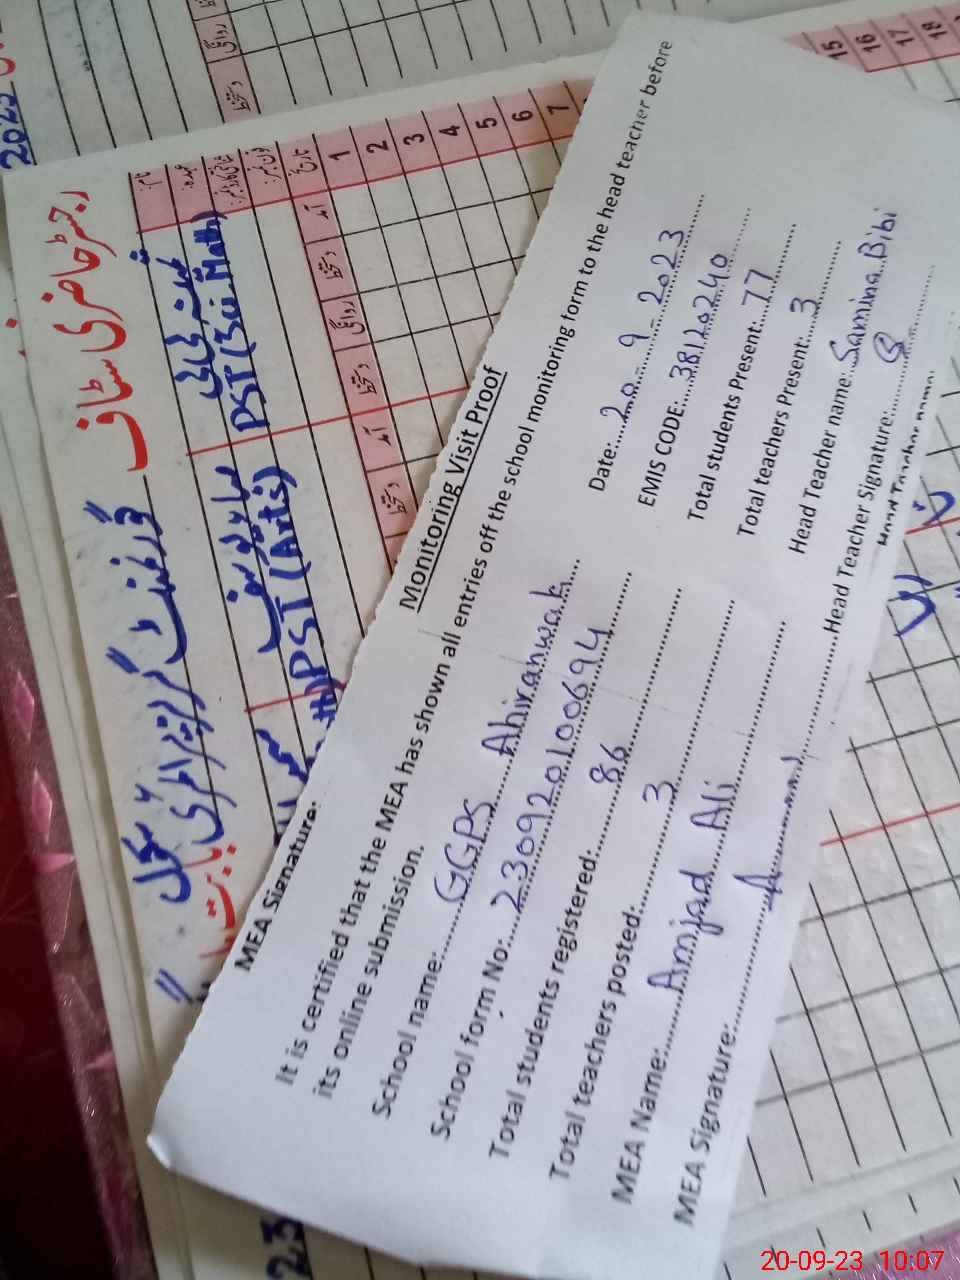 رجسٹر حاضری سٹاف
گورنمنٹ گرلز پرائمری سکول
بابت ماہ
نام:
عہدہ:
تاریخ
1 2 3 4 5 6 7
15 16 17 18
PST (Sci. Math)
PST (Arts)
آمد
دستخط
روانگی
دستخط
آمد
دستخط
MEA Signature:
Monitoring Visit Proof
It is certified that the MEA has shown all entries off the school monitoring form to the head teacher before
its online submission.
School name: GGPS Ahiranwak
Date: 20-9-2023
School form No: 230920100694
EMIS CODE: 38120240
Total students registered: 86
Total students Present: 77
Total teachers posted: 3
Total teachers Present: 3
MEA Name: Amjad Ali
Head Teacher name: Samina Bibi
MEA Signature:
Head Teacher Signature:
2023
23
20-09-23 10:07